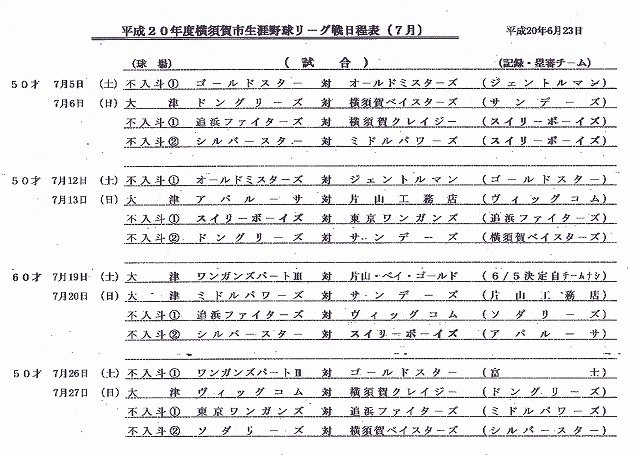 平成２０年度横須賀市生涯野球リーグ戦日程表（７月） 平成20年6月23日
（球　場） （　試　合　） （記録・塁審チーム）
５０才 7月5日 （土） 不入斗① ゴールドスター 対 オールドミスターズ （ジェントルマン）
7月6日 （日） 大　津 ドングリーズ 対 横須賀ベイスターズ （サンデーズ）
不入斗① 追浜ファイターズ 対 横須賀クレイジー （スイリーボーイズ）
不入斗② シルバースター 対 ミドルパワーズ （スイリーボーイズ）
５０才 7月12日 （土） 不入斗① オールドミスターズ 対 ジェントルマン （ゴールドスター）
7月13日 （日） 大　津 アパルーサ 対 片山工務店 （ヴィッグコム）
不入斗① スイリーボーイズ 対 東京ワンガンズ （追浜ファイターズ）
不入斗② ドングリーズ 対 サンデーズ （横須賀ベイスターズ）
６０才 7月19日 （土） 大　津 ワンガンズパートⅢ 対 片山・ベイ・ゴールド （６/５決定自チームナシ）
7月20日 （日） 大　津 ミドルパワーズ 対 サンデーズ （片山工務店）
不入斗① 追浜ファイターズ 対 ヴィッグコム （ソダリーズ）
不入斗② シルバースター 対 スイリーボーイズ （アパルーサ）
５０才 7月26日 （土） 不入斗① ワンガンズパートⅡ 対 ゴールドスター （富　士）
7月27日 （日） 大　津 ヴィッグコム 対 横須賀クレイジー （ドングリーズ）
不入斗① 東京ワンガンズ 対 追浜ファイターズ （ミドルパワーズ）
不入斗② ソダリーズ 対 横須賀ベイスターズ （シルバースター）